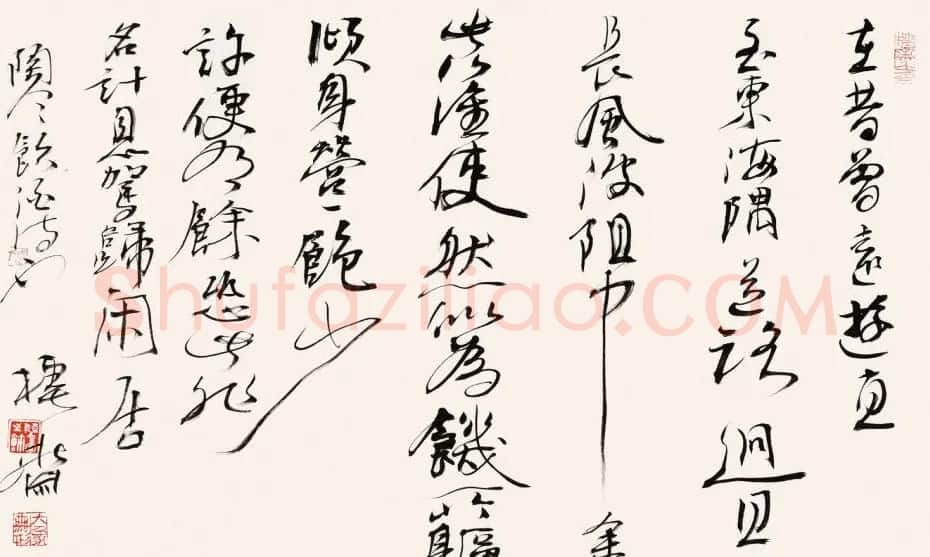 在昔曾遠遊直
至東海隅道路迥且
長風波阻中
此誰使然似為饑所驅
傾身營一飽少
許便有餘恐此非
名計息駕歸閑居
陶令飲酒詩
Shufaziliao.COM